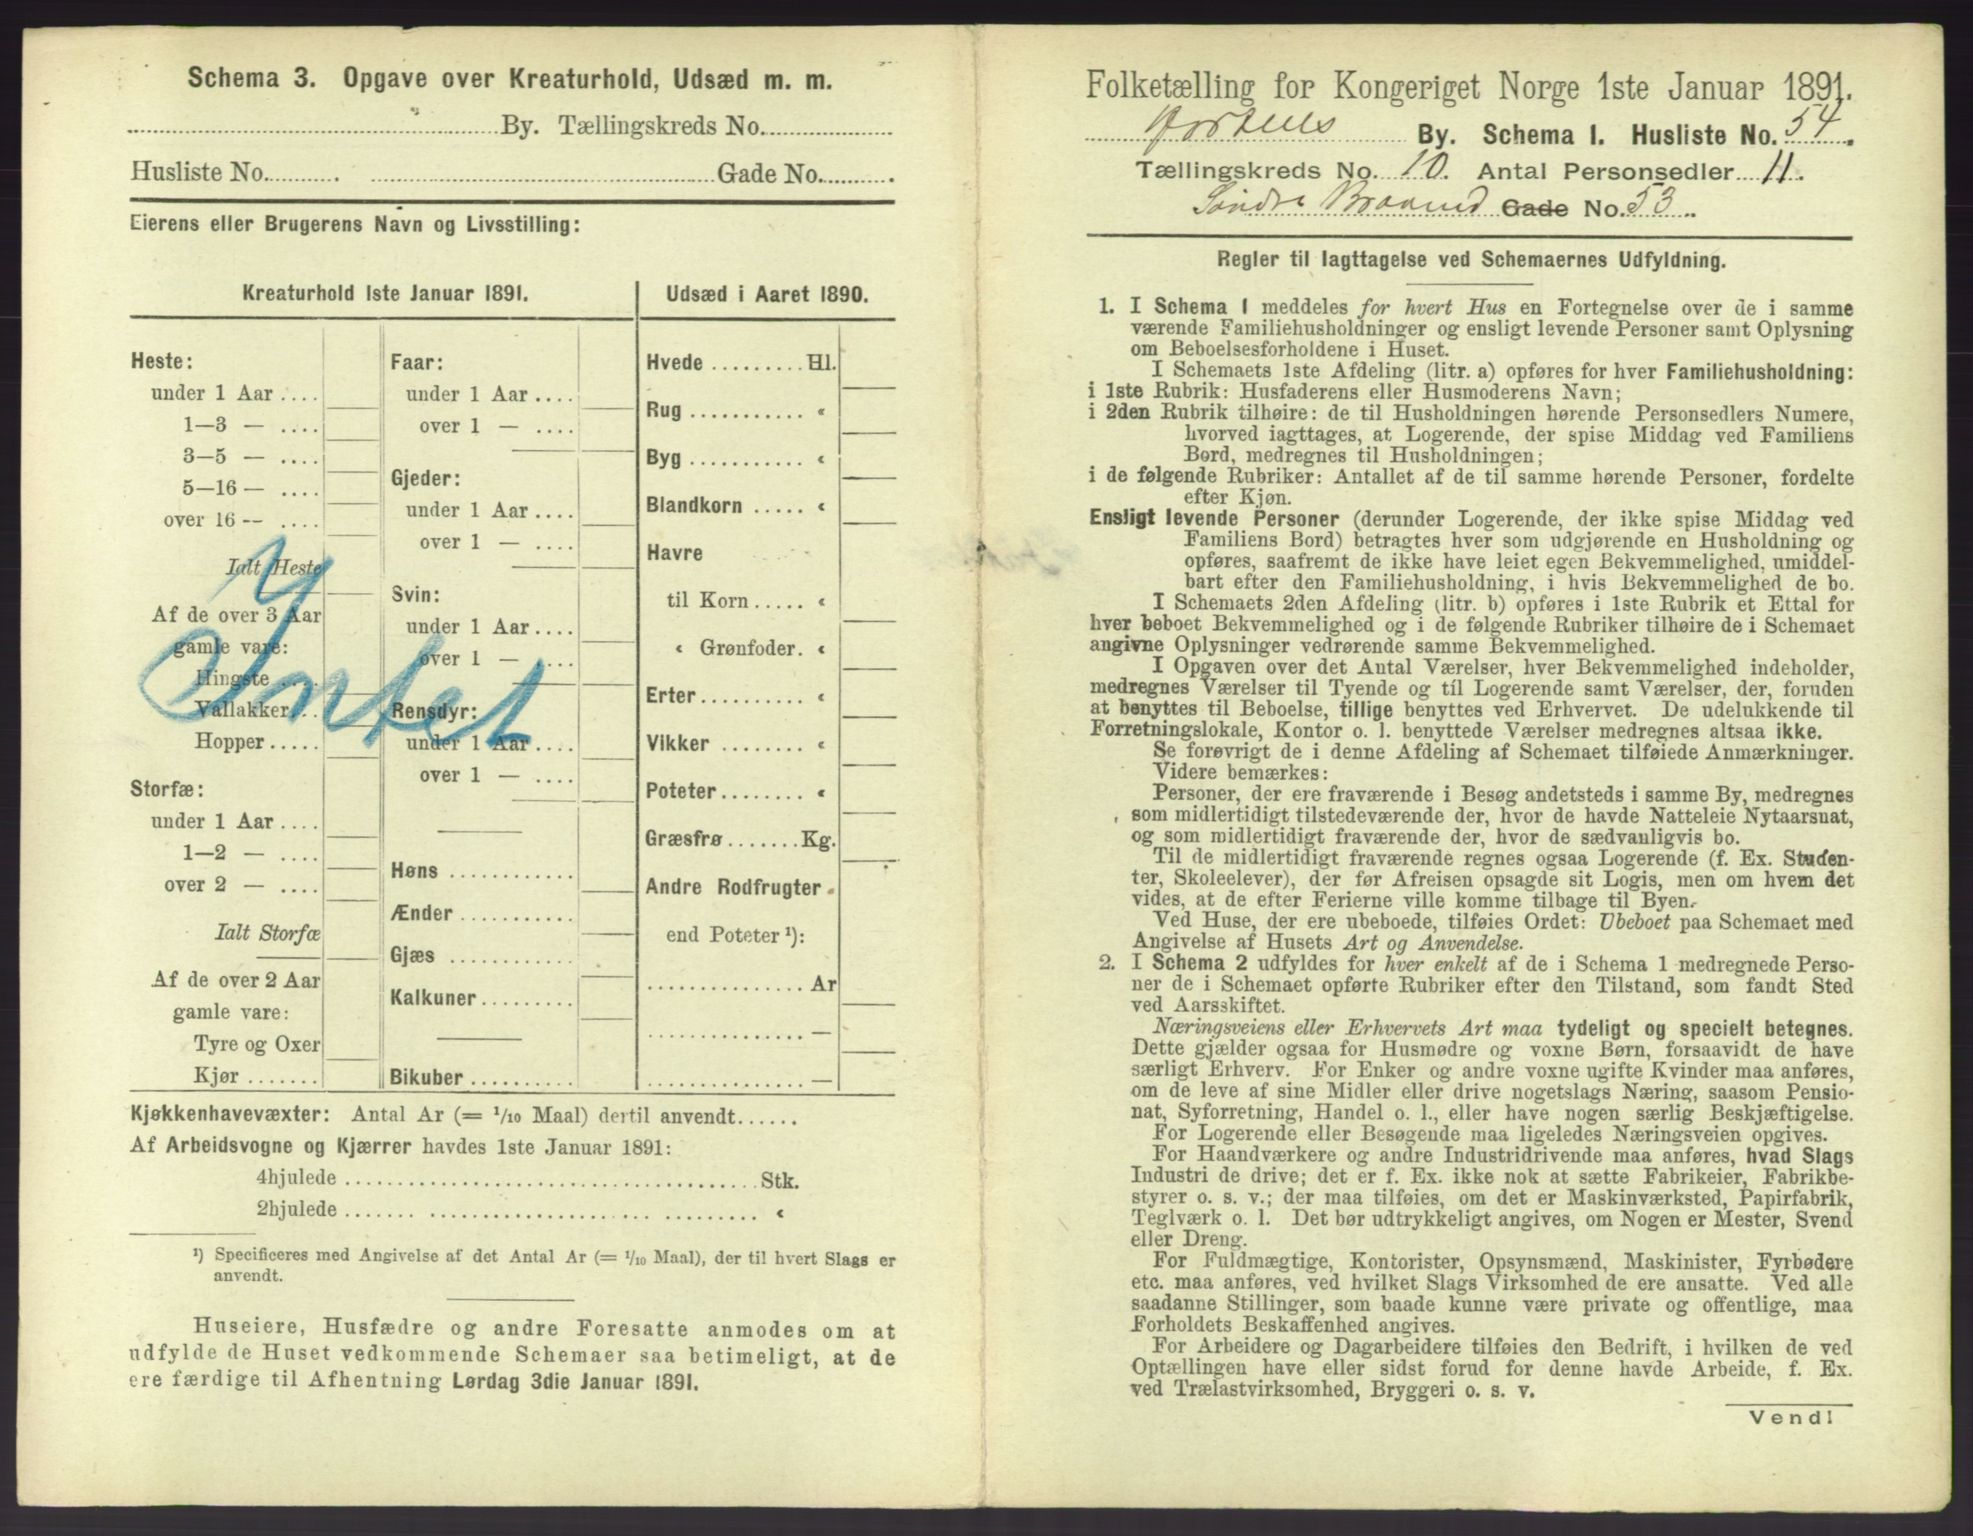 Schema 3. Opgave over Kreaturhold, Udsæd m. m.
By. Tællingskreds No.
Husliste No. Gade No.
Eierens eller Brugerens Navn og Livsstilling:
Kreaturhold 1ste Januar 1891.
Heste:
under 1 Aar
1—3 —
3—5 —
5—16 —
over 16 —
Ialt Heste
Af de over 3 Aar
gamle vare:
Hingste
Vallakker
Hopper
Intet
Storfæ:
under 1 Aar
1—2 —
over 2 —
Ialt Storfæ
Af de over 2 Aar
gamle vare:
Tyre og Oxer
Kjør
Faar:
under 1 Aar
over 1 —
Gjeder:
under 1 Aar
over 1 —
Svin:
under 1 Aar
over 1 —
Rensdyr:
under 1 Aar
over 1 —
Høns
Ænder
Gjæs
Kalkuner
Bikuber
Udsæd i Aaret 1890.
Hvede Hl.
Rug «
Byg «
Blandkorn «
Havre
til Korn «
« Grønfoder. «
Erter «
Vikker «
Poteter «
Græsfrø Kg.
Andre Rodfrugter
end Poteter ¹):
Ar
—
—
Kjøkkenhavevæxter: Antal Ar (= 1/10 Maal) dertil anvendt
Af Arbeidsvogne og Kjærrer havdes 1ste Januar 1891:
4hjulede Stk.
2hjulede «
¹) Specificeres med Angivelse af det Antal Ar (= 1/10 Maal), der til hvert Slags er
anvendt.
Huseiere, Husfædre og andre Foresatte anmodes om at
udfylde de Huset vedkommende Schemaer saa betimeligt, at de
ere færdige til Afhentning Lørdag 3die Januar 1891.
Folketælling for Kongeriget Norge 1ste Januar 1891.
Hortens By. Schema 1. Husliste No. 54.
Tællingskreds No. 10. Antal Personsedler 11.
Søndre Braarud Gade No. 53.
Regler til Iagttagelse ved Schemaernes Udfyldning.
1. I Schema 1 meddeles for hvert Hus en Fortegnelse over de i samme
værende Familiehusholdninger og ensligt levende Personer samt Oplysning
om Beboelsesforholdene i Huset.
I Schemaets 1ste Afdeling (litr. a) opføres for hver Familiehusholdning:
i 1ste Rubrik: Husfaderens eller Husmoderens Navn;
i 2den Rubrik tilhøire: de til Husholdningen hørende Personsedlers Numere,
hvorved iagttages, at Logerende, der spise Middag ved Familiens
Bord, medregnes til Husholdningen;
i de følgende Rubriker: Antallet af de til samme hørende Personer, fordelte
efter Kjøn.
Ensligt levende Personer (derunder Logerende, der ikke spise Middag ved
Familiens Bord) betragtes hver som udgjørende en Husholdning og
opføres, saafremt de ikke have leiet egen Bekvemmelighed, umiddel-
bart efter den Familiehusholdning, i hvis Bekvemmelighed de bo.
I Schemaets 2den Afdeling (litr. b) opføres i 1ste Rubrik et Ettal for
hver beboet Bekvemmelighed og i de følgende Rubriker tilhøire de i Schemaet
angivne Oplysninger vedrørende samme Bekvemmelighed.
I Opgaven over det Antal Værelser, hver Bekvemmelighed indeholder,
medregnes Værelser til Tyende og til Logerende samt Værelser, der, foruden
at benyttes til Beboelse, tillige benyttes ved Erhvervet. De udelukkende til
Forretningslokale, Kontor o. l. benyttede Værelser medregnes altsaa ikke.
Se forøvrigt de i denne Afdeling af Schemaet tilføiede Anmærkninger.
Videre bemærkes:
Personer, der ere fraværende i Besøg andetsteds i samme By, medregnes
som midlertidigt tilstedeværende der, hvor de havde Natteleie Nytaarsnat,
og som midlertidigt fraværende der, hvor de sædvanligvis bo.
Til de midlertidigt fraværende regnes ogsaa Logerende (f. Ex. Studen-
ter, Skoleelever), der før Afreisen opsagde sit Logis, men om hvem det
vides, at de efter Ferierne ville komme tilbage til Byen.
Ved Huse, der ere ubeboede, tilføies Ordet: Ubeboet paa Schemaet med
Angivelse af Husets Art og Anvendelse.
2. I Schema 2 udfyldes for hver enkelt af de i Schema 1 medregnede Perso-
ner de i Schemaet opførte Rubriker efter den Tilstand, som fandt Sted
ved Aarsskiftet.
Næringsveiens eller Erhvervets Art maa tydeligt og specielt betegnes.
Dette gjælder ogsaa for Husmødre og voxne Børn, forsaavidt de have
særligt Erhverv. For Enker og andre voxne ugifte Kvinder maa anføres,
om de leve af sine Midler eller drive nogetslags Næring, saasom Pensio-
nat, Syforretning, Handel o. l., eller have nogen særlig Beskjæftigelse.
For Logerende eller Besøgende maa ligeledes Næringsveien opgives.
For Haandværkere og andre Industridrivende maa anføres, hvad Slags
Industri de drive; det er f. Ex. ikke nok at sætte Fabrikeier, Fabrikbe-
styrer o. s. v.; der maa tilføies, om det er Maskinværksted, Papirfabrik,
Teglværk o. l. Det bør udtrykkeligt angives, om Nogen er Mester, Svend
eller Dreng.
For Fuldmægtige, Kontorister, Opsynsmænd, Maskinister, Fyrbødere
etc. maa anføres, ved hvilket Slags Virksomhed de ere ansatte. Ved alle
saadanne Stillinger, som baade kunne være private og offentlige, maa
Forholdets Beskaffenhed angives.
For Arbeidere og Dagarbeidere tilføies den Bedrift, i hvilken de ved
Optællingen have eller sidst forud for denne havde Arbeide, f. Ex.
ved Trælastvirksomhed, Bryggeri o. s. v.
Vend!